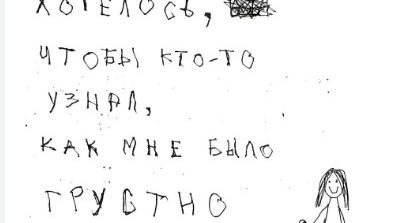 ХОТЕЛОСЬ,
ЧТОБЫ КТО-ТО
УЗНАЛ,
КАК МНЕ БЫЛО
ГРУСТНО